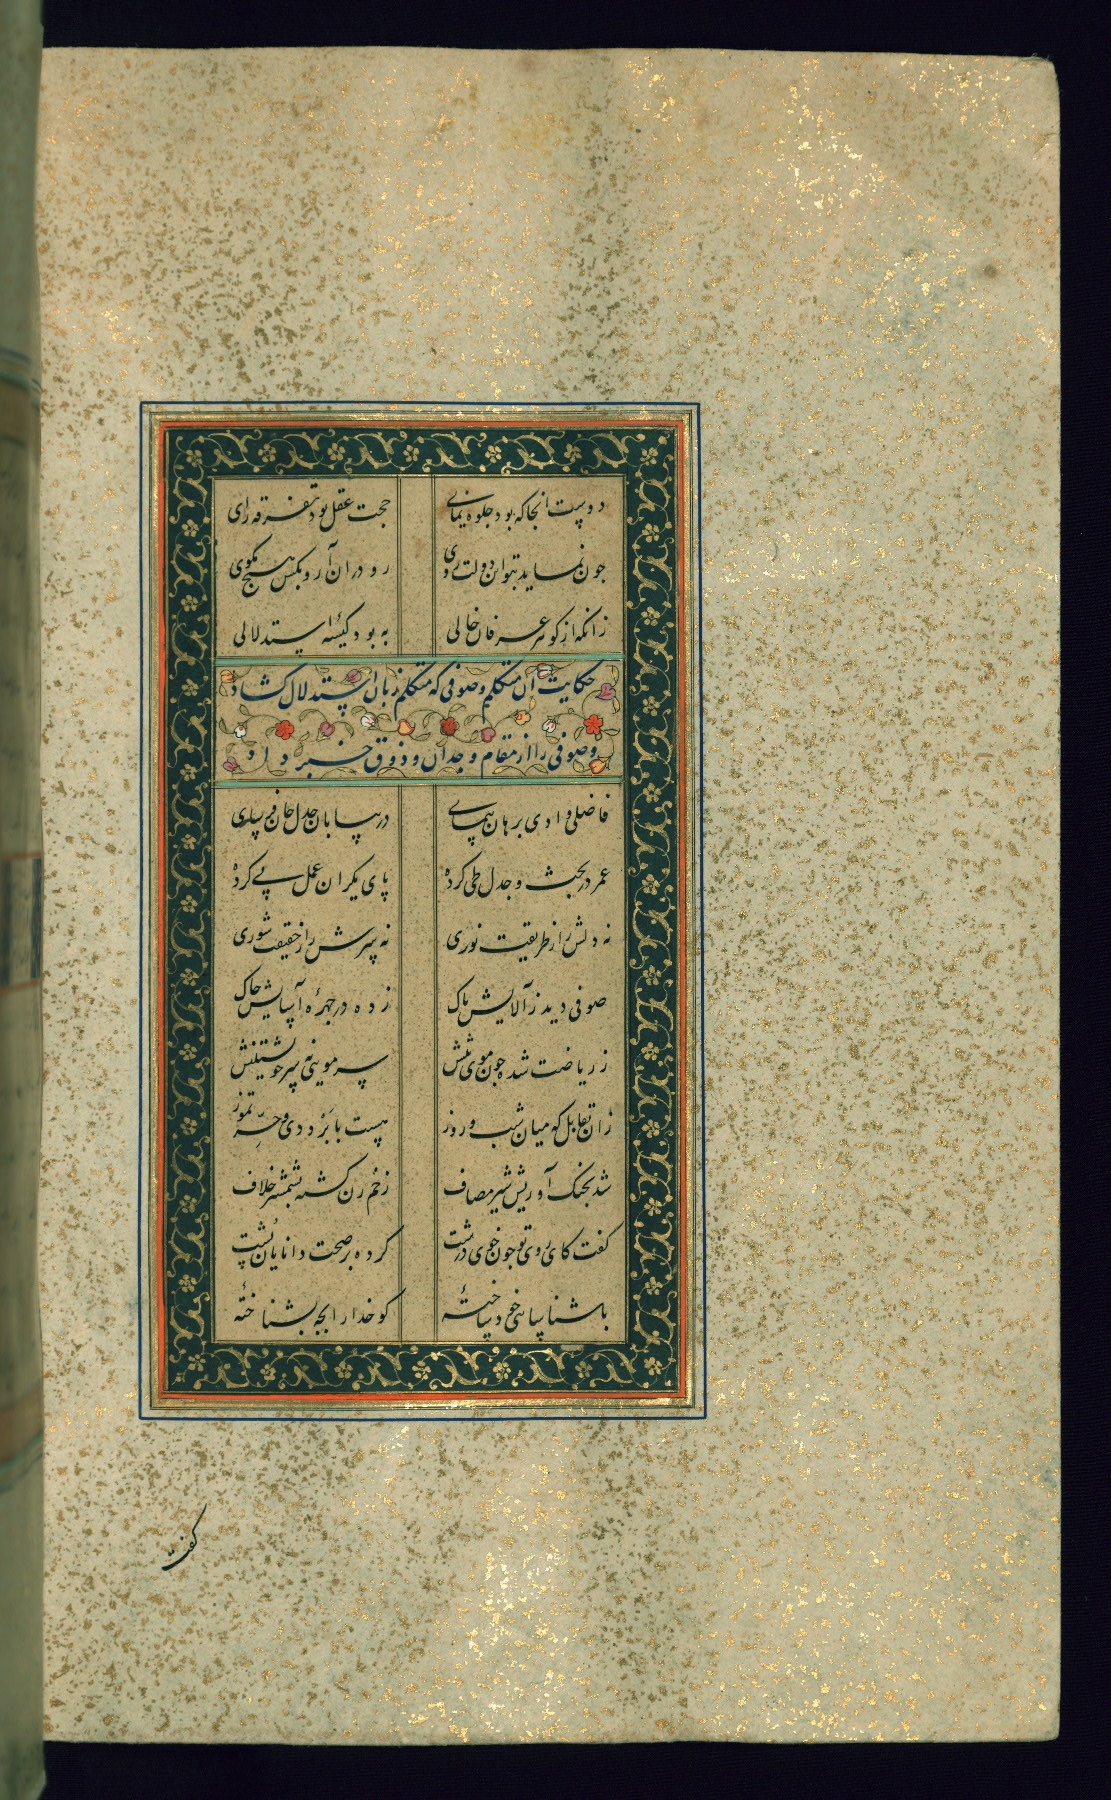 دوست آنجا که بود جلوه نمای حجت عقل بود تفرقه رای
چون نماید بتو آن دولت روی رو در آن آر و بکس هیچ مگوی
زانکه از گوهر عرفان خالی به بود کیسهٔ استدلالی
حکایت آن متکلم و صوفی که متکلم زبان استدلال گشاد
و صوفی را از مقام وجدان و ذوق خبر داد
فاضلی وادی برهان پیمای در بیابان جدل جان فرسای
عمر در بحث و جدل طی کرده پای یکران عمل پی کرده
نه دلش را ز طریقت نوری نه سرش را ز حقیقت شوری
صوفی دید ز آلایش پاک زده در چهرهٔ آسایش خاک
ز ریاضت شده چون موی تنش
زان تقابل که میان شب و روز هست با برد دی و حر تموز
شد بجنک آوریش شیر مصاف زخم زن گشته شمشیر خلاف
گفت کای روی تو چون خوی درشت کرده بر صحبت دانایان پشت
با شناسائی خود ساخته کو خدا را بچه بشناخته
گفت